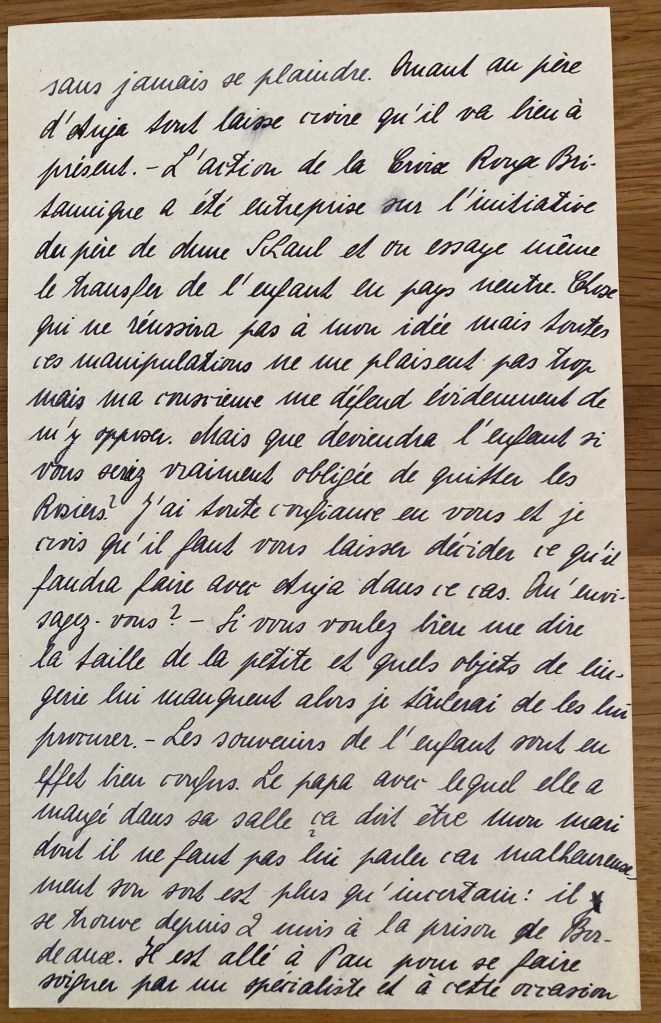 sans jamais se plaindre. Quant au père
d'Anja tout laisse croire qu'il va bien à
présent. - L'action de la Croix Rouge Bri-
tannique a été entreprise sur l'initiative
du père de dme Schaul et on essaye même
le transfer de l'enfant en pays neutre. Chose
qui ne réussira pas à mon idée mais toutes
ces manipulations ne me plaisent pas trop
mais ma conscience me défend évidemment de
m'y opposer. Mais que deviendra l'enfant si
vous seriez vraiment obligée de quitter les
Rosiers? J'ai toute confiance en vous et je
crois qu'il faut vous laisser décider ce qu'il
faudra faire avec Anja dans ce cas. Qu'envi-
sagez-vous? - Si vous voulez bien me dire
la taille de la petite et quels objets de lin-
gerie lui manquent alors je tâcherai de les lui
procurer. - Les souvenirs de l'enfant sont en
effet bien confus. Le papa avec lequel elle a
mangé dans sa salle ça doit être mon mari
dont il ne faut pas lui parler car malheureuse-
ment son sort est plus qu'incertain: il
se trouve depuis 2 mois à la prison de Bor-
deaux. Il est allé à Pau pour se faire
soigner par un spécialiste et à cette occasion